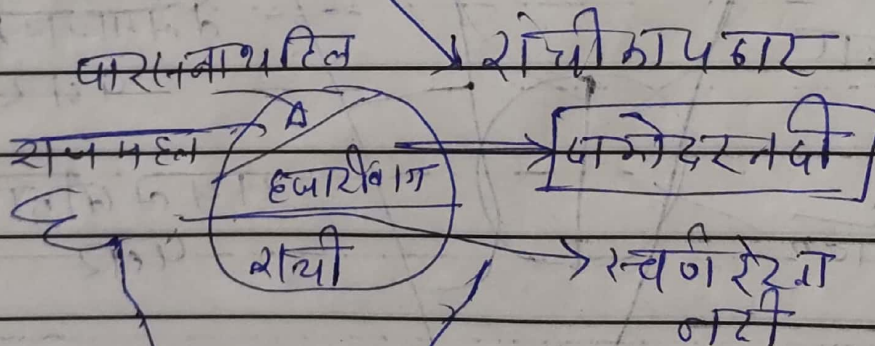 पारसनाथ हिल
राँची का पठार
राजमहल
हजारीबाग
दामोदर नदी
राची
स्वर्ण रेखा
नदी